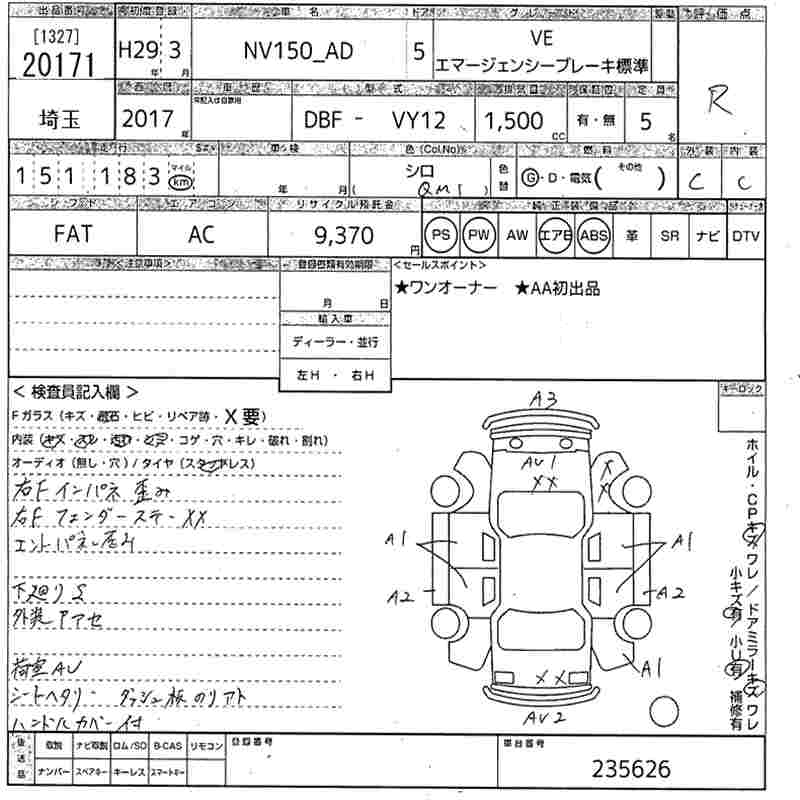 出品番号 初度登録 車名 ドア グレード 評価点
[1327]
20171
H29年 3月
NV150_AD
5
VE
エマージェンシーブレーキ標準
R
埼玉
2017年
車歴 型式 排気量 保証書 定員
DBF - VY12
1,500cc
有・無
5名
走行 車検 色(Col.No) 燃料 外装 内装
151183 マイル km
年 月
シロ
(QM1)
色替
Ⓖ・D・電気( その他 )
C C
シフト エアコン リサイクル預託金 純正装備品
FAT
AC
9,370円
PS PW AW エアB ABS 革 SR ナビ DTV
<注意事項>
登録書類有効期限
月 日
輸入車
ディーラー・並行
左H ・ 右H
<セールスポイント>
★ワンオーナー ★AA初出品
< 検査員記入欄 >
キーロック
Fガラス(キズ・飛石・ヒビ・リペア跡・X要)
内装(キズ・スレ・汚れ・コゲ・穴・キレ・破れ・割れ)
オーディオ(無し・穴)/タイヤ(スタッドレス)
右Fインパネ歪み
右Fフェンダーステー XX
エンドパネル歪み
下廻りS
外装アアセ
荷室AU
シートヘタリ・ダッシュ板のリアト
ハンドルカバー付
A3
AU1
XX
X
X
A1
A1
A2
A2
A1
XX
AU2
ホイル・CPキズワレ/ドアミラーキズワレ
小キズ有 小U有 補修有
後送品
取説 ナビ取説 ロム/SD B-CAS リモコン
ナンバー スペアキー キーレス スマートキー
登録番号
車台番号
235626